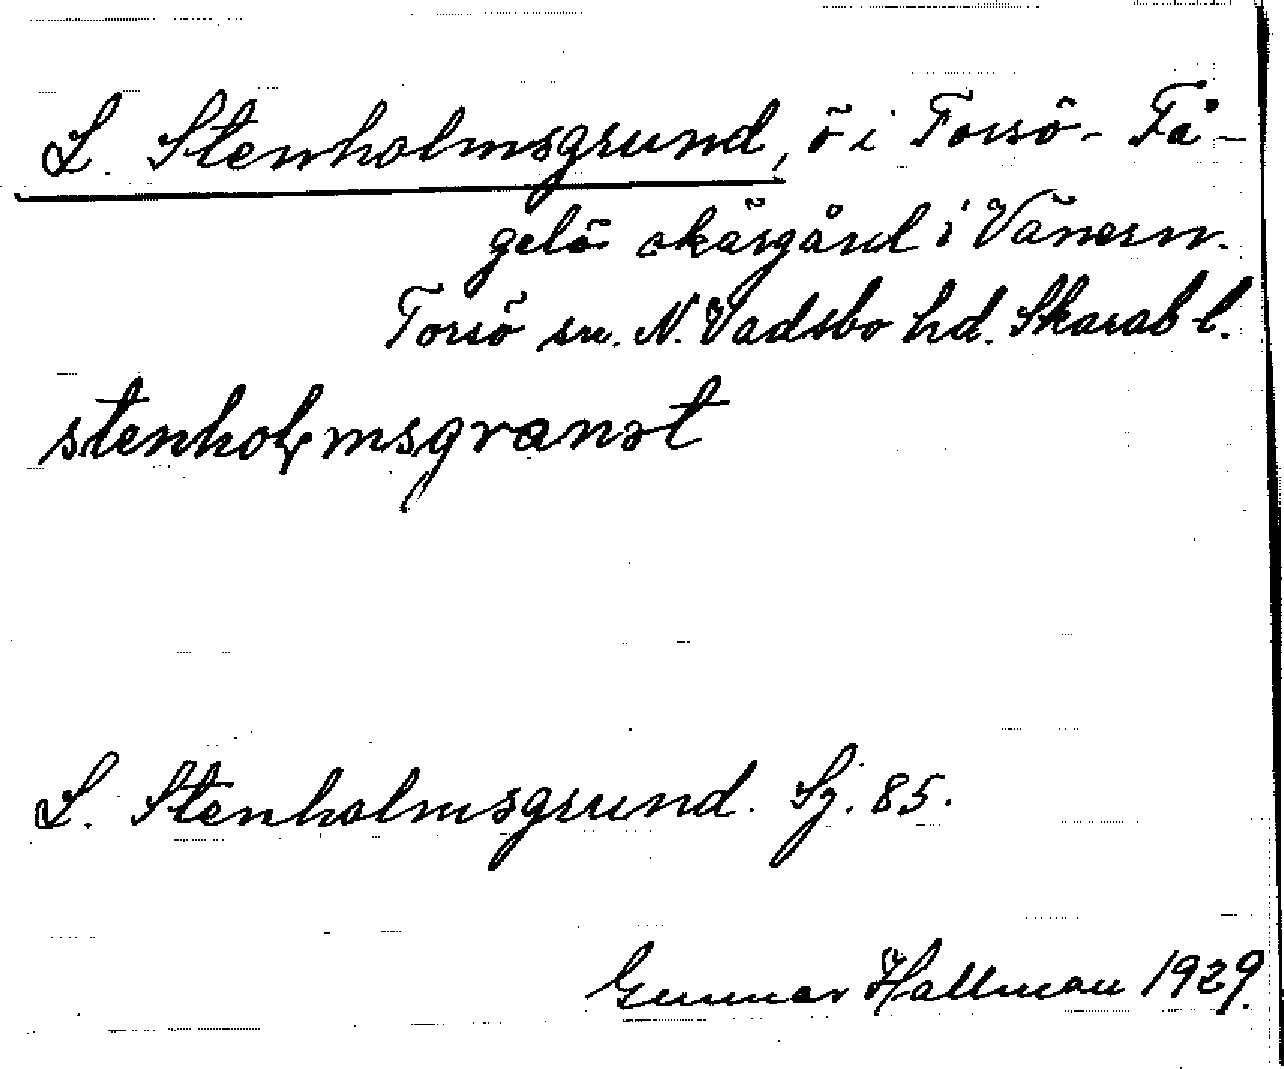 L. Stenholmsgrund, ö i Torsö-Få-
gelö skärgård i Vänern.
Torsö sn. N. Vadsbo hd. Skarab l.
stenholmsgranət
L. Stenholmsgrund. Sj. 85.
Gunnar Hallman 1929.